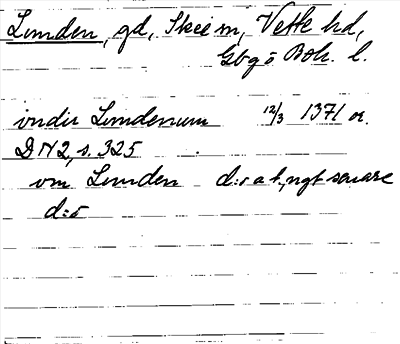 Lunden, gd, Skee sn, Vette hd,
Gbg o Boh. l.
vndir Lundenum 12/3 1371 or.
DN 2, s. 325
vm Lunden d:o a k, ngt senare
d:o